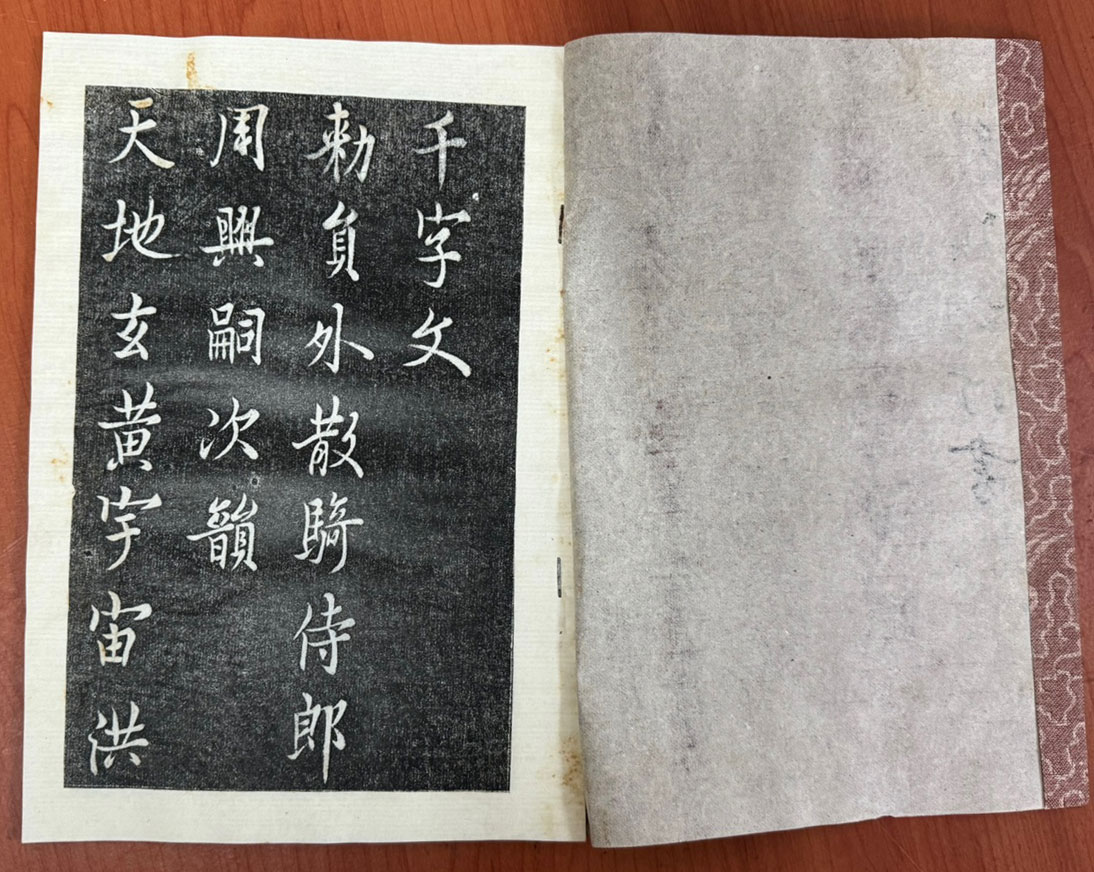 千字文
勅員外散騎侍郎
周興嗣次韻
天地玄黃宇宙洪